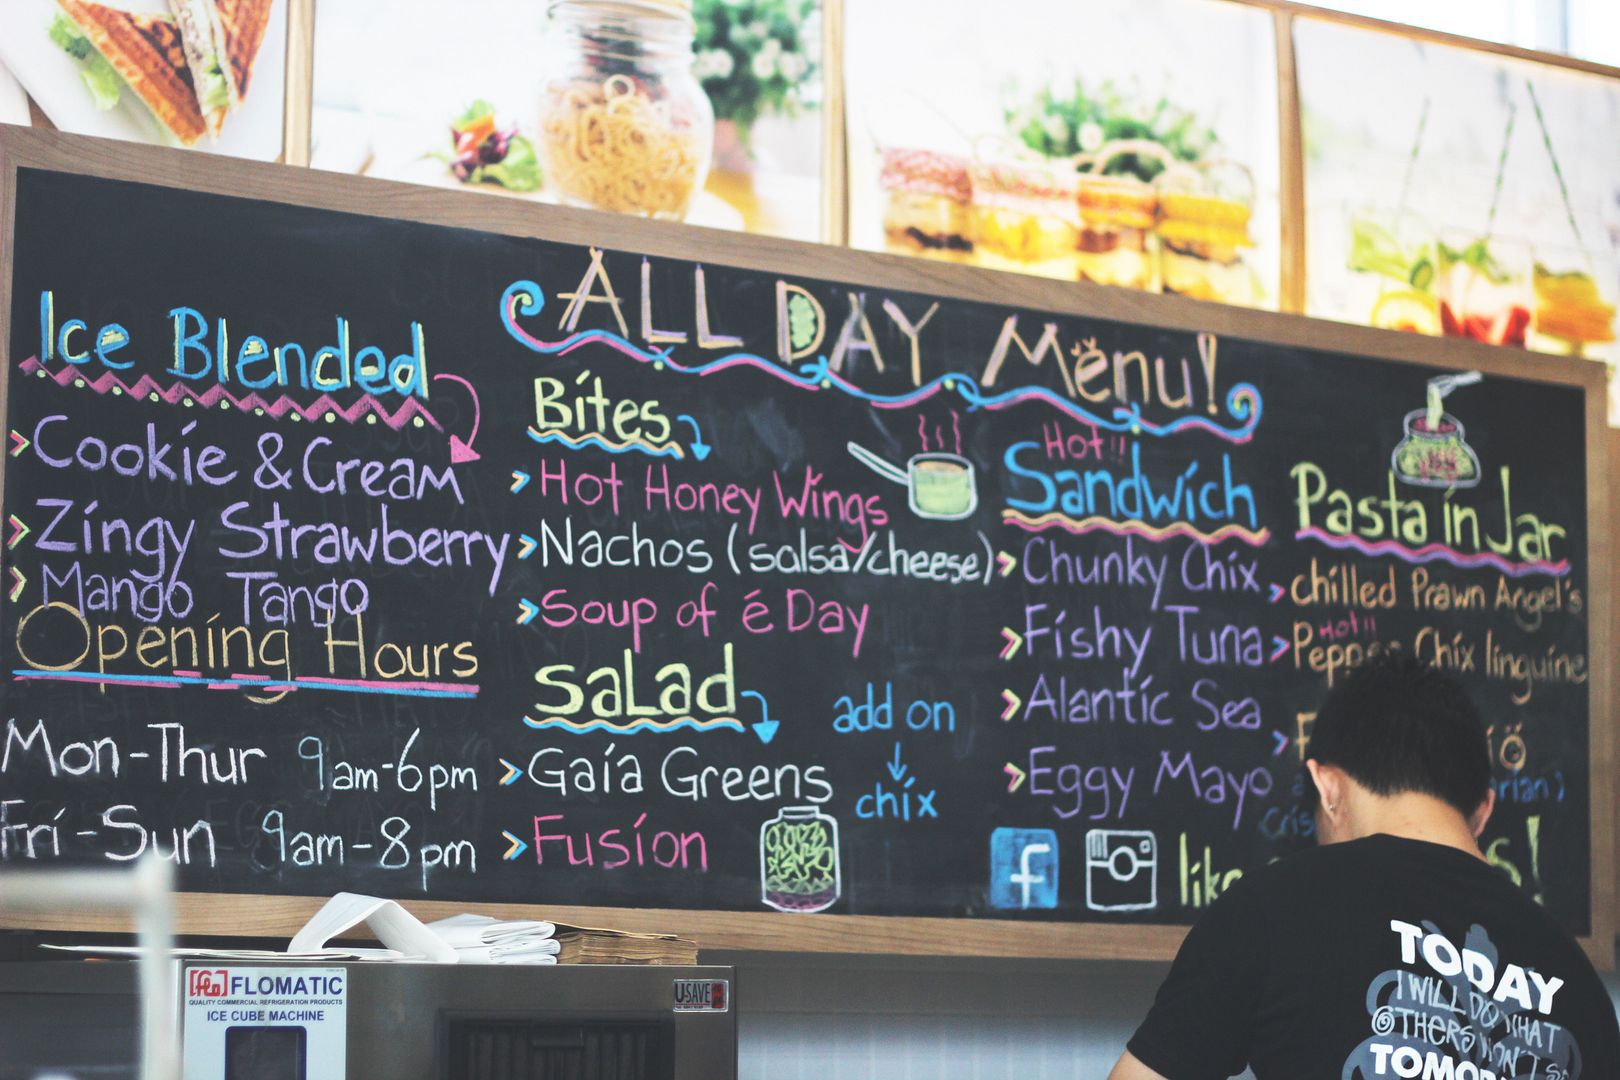 ALL DAY Menu!
Ice Blended
Cookie & Cream
Zingy Strawberry
Mango Tango
Opening Hours
Mon-Thur 9am-6pm
Fri-Sun 9am-8pm
Bites
Hot Honey Wings
Nachos (salsa/cheese)
Soup of é Day
Salad
Gaía Greens
Fusion
add on
chix
Hot!!
Sandwich
Chunky Chix
Fishy Tuna
Alantic Sea
Eggy Mayo
Pasta in Jar
chilled Prawn Angel's
Hot!!
Chix linguine
f
FLOMATIC
QUALITY COMMERCIAL REFRIGERATION PRODUCTS
ICE CUBE MACHINE
U-SAVE
TODAY
I WILL DO WHAT
OTHERS WON'T